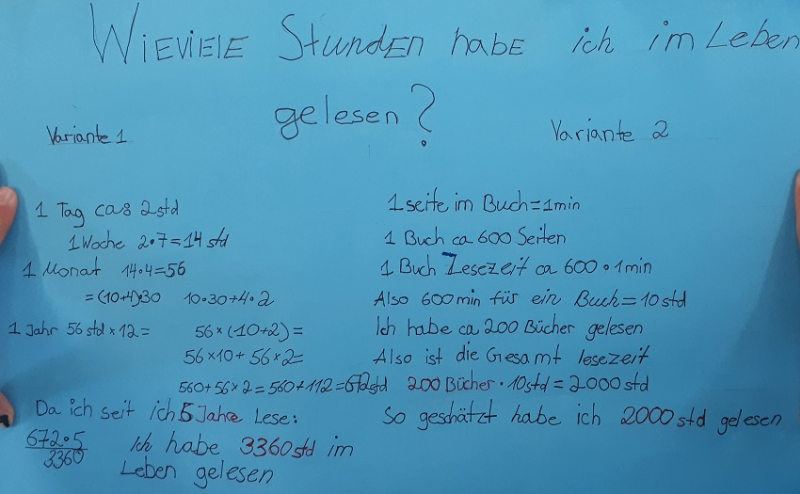 WIEVIELE StundEN habE ich im Leben
gelesen?
Variante 1
1 Tag ca 2 std
1 Woche 2•7=14 std
1 Monat 14•4=56
=(10+4)•30 10•30+4•2
1 Jahr 56 std x 12= 56 x (10+2)=
56 x 10 + 56 x 2=
560+56 x 2=560+112=672 std
Da ich seit ich 5 Jahre Lese:
672•5
3360
Ich habe 3360 std im
Leben gelesen
Variante 2
1 seite im Buch=1min
1 Buch ca 600 Seiten
1 Buch Lesezeit ca 600•1min
Also 600min für ein Buch=10 std
Ich habe ca 200 Bücher gelesen
Also ist die Gesamt lesezeit
200 Bücher•10std=2000 std
So geschätzt habe ich 2000 std gelesen